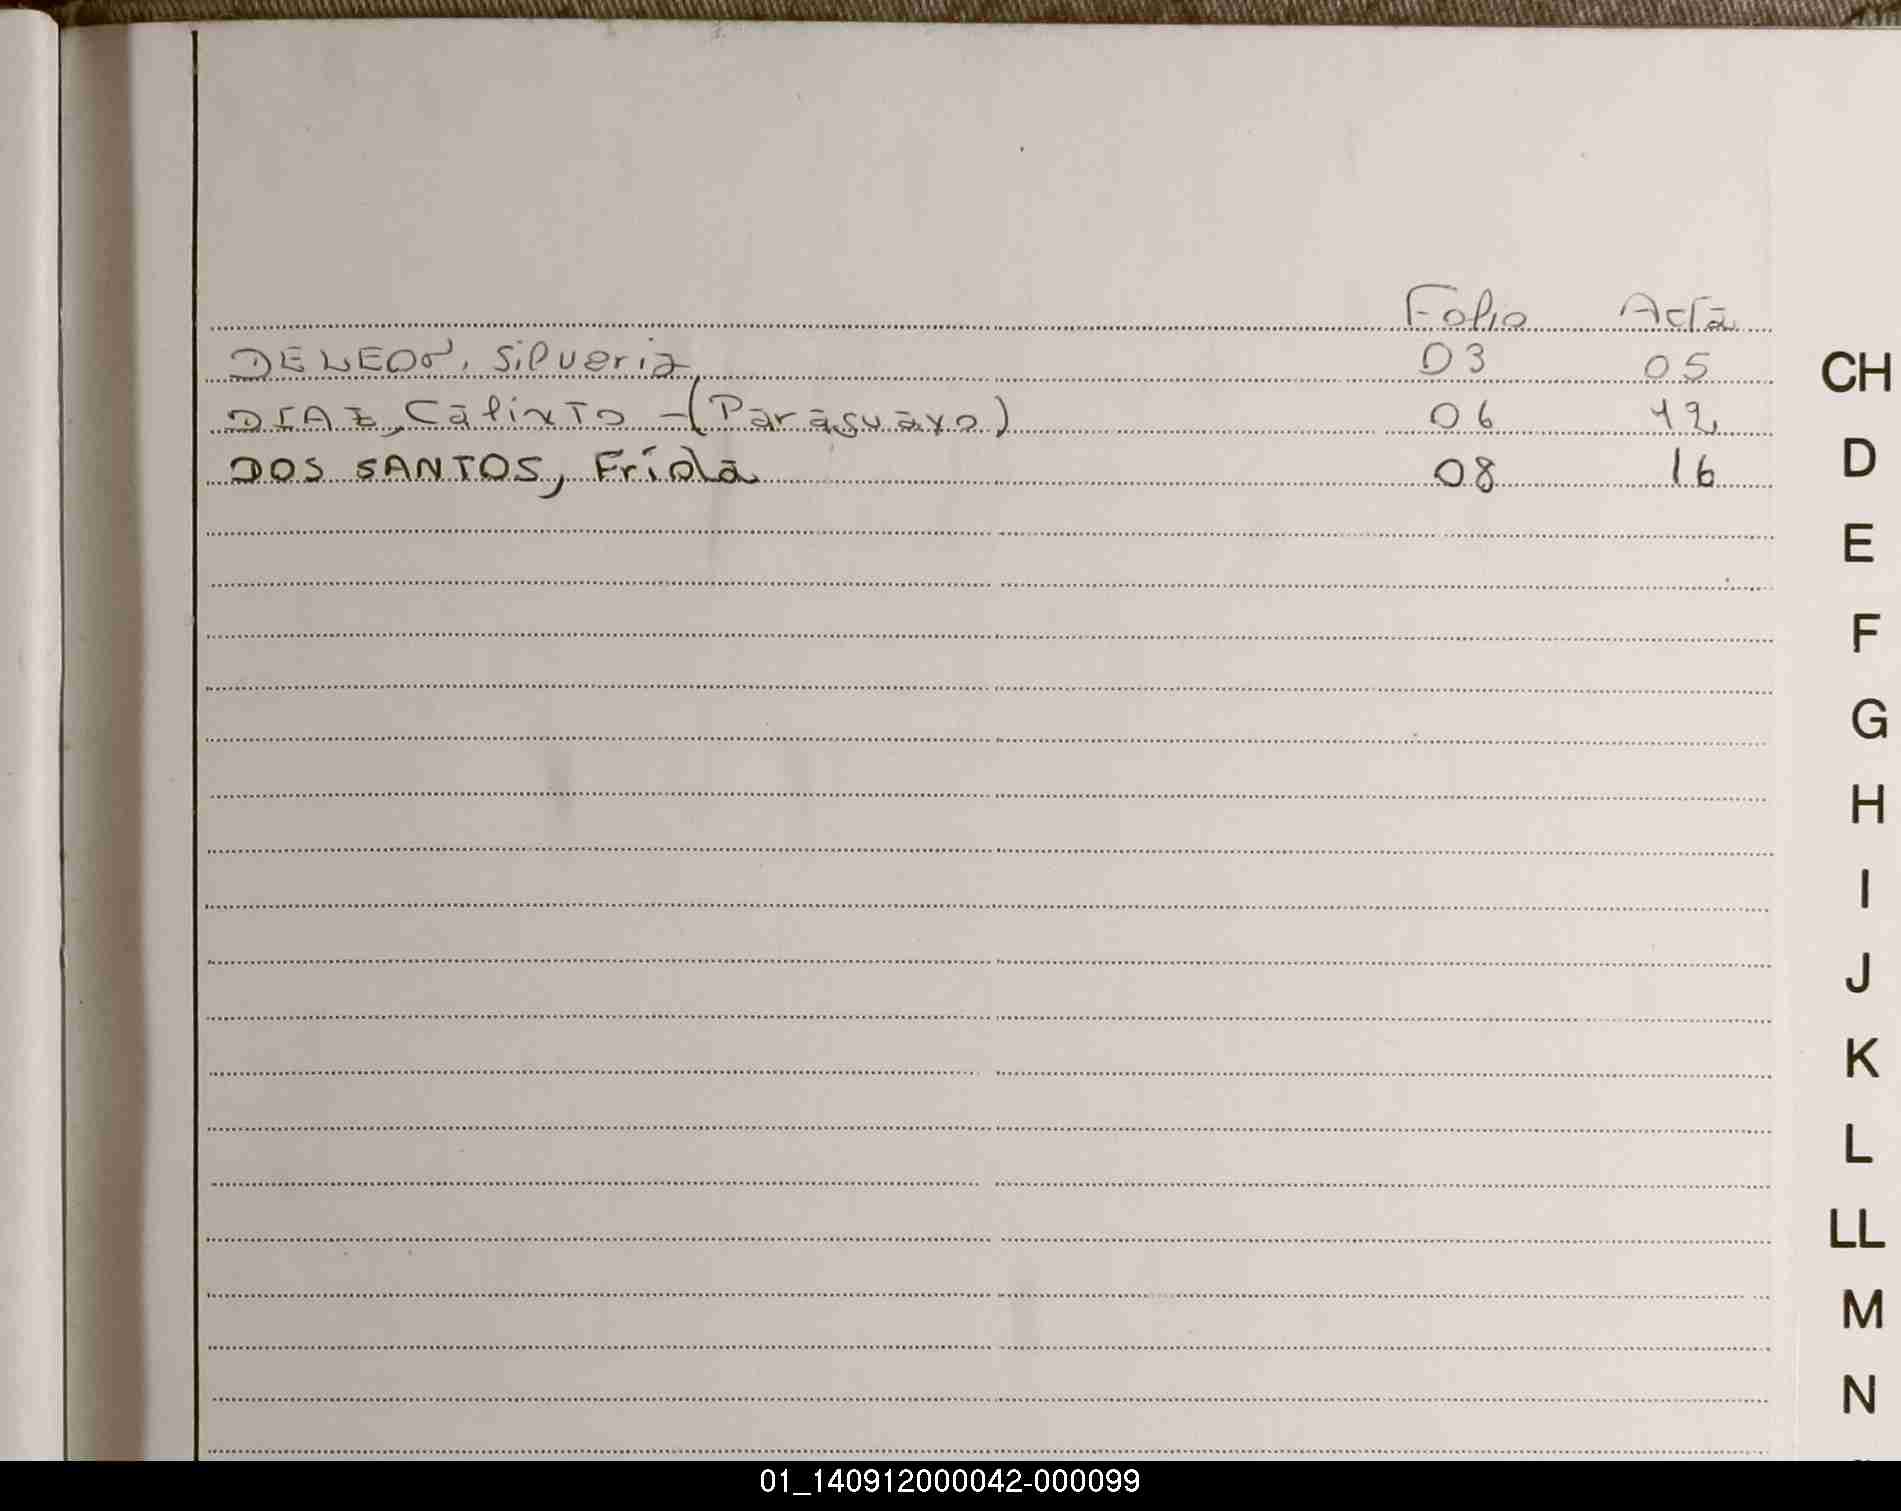 Folio Acta
DE LEON, Silveria 03 05
DIAZ, Calixto - (Paraguayo) 06 12
DOS SANTOS, Frida 08 16
CH
D
E
F
G
H
I
J
K
L
LL
M
N
01_140912000042-000099